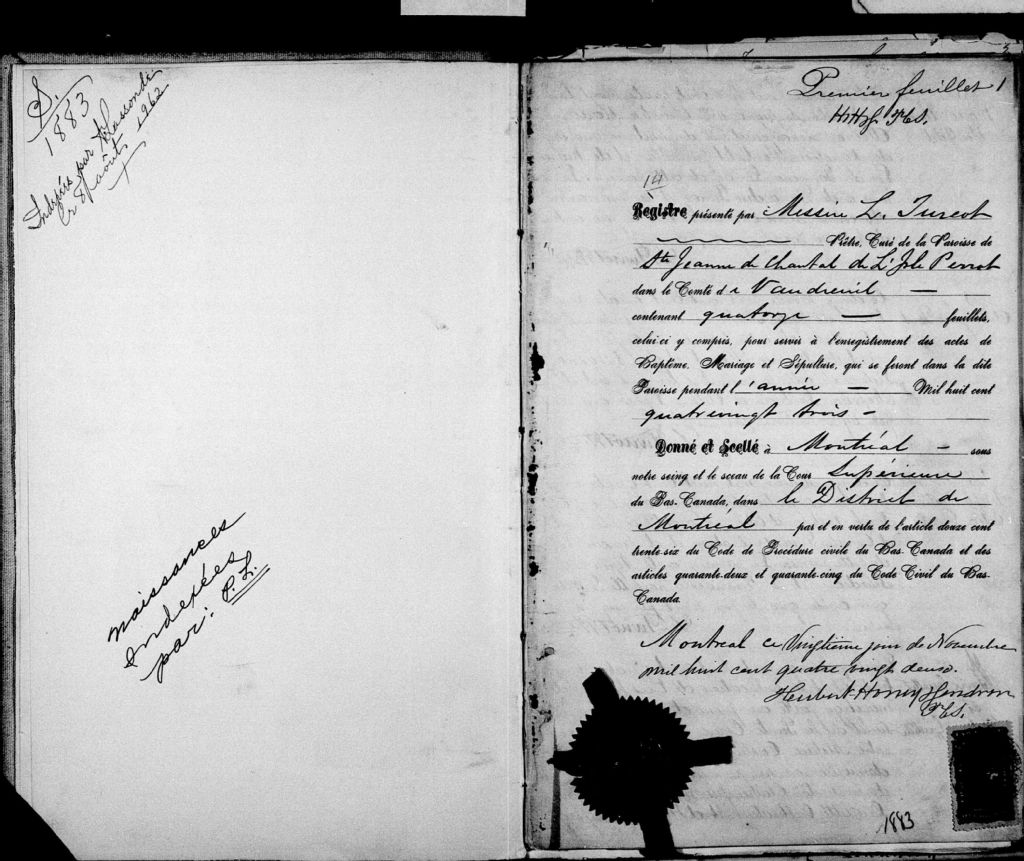 S.
1883
Indexés par
le 8 août 1962
naissances
indexées
par: P. L.
Premier feuillet 1
HHH
14
Registre présenté par Messire L. Turcot
Prêtre, Curé de la Paroisse de
Ste Jeanne de Chantal de L'Isle Perrot
dans le Comté de Vaudreuil —
contenant quatorze — feuillets,
celui-ci y compris, pour servir à l'enregistrement des actes de
Baptême, Mariage et Sépulture, qui se feront dans la dite
Paroisse pendant l'année — Mil huit cent
quatrevingt trois -
Donné et Scellé à Montréal - sous
notre seing et le sceau de la Cour Supérieure
du Bas-Canada, dans le District de
Montréal par et en vertu de l'article douze cent
trente-six du Code de Procédure civile du Bas-Canada et des
articles quarante-deux et quarante-cinq du Code Civil du Bas-
Canada.
Montreal ce Vingtieme jour de Novembre
mil huit cent quatre vingt deux.
Herbert Henry
1883